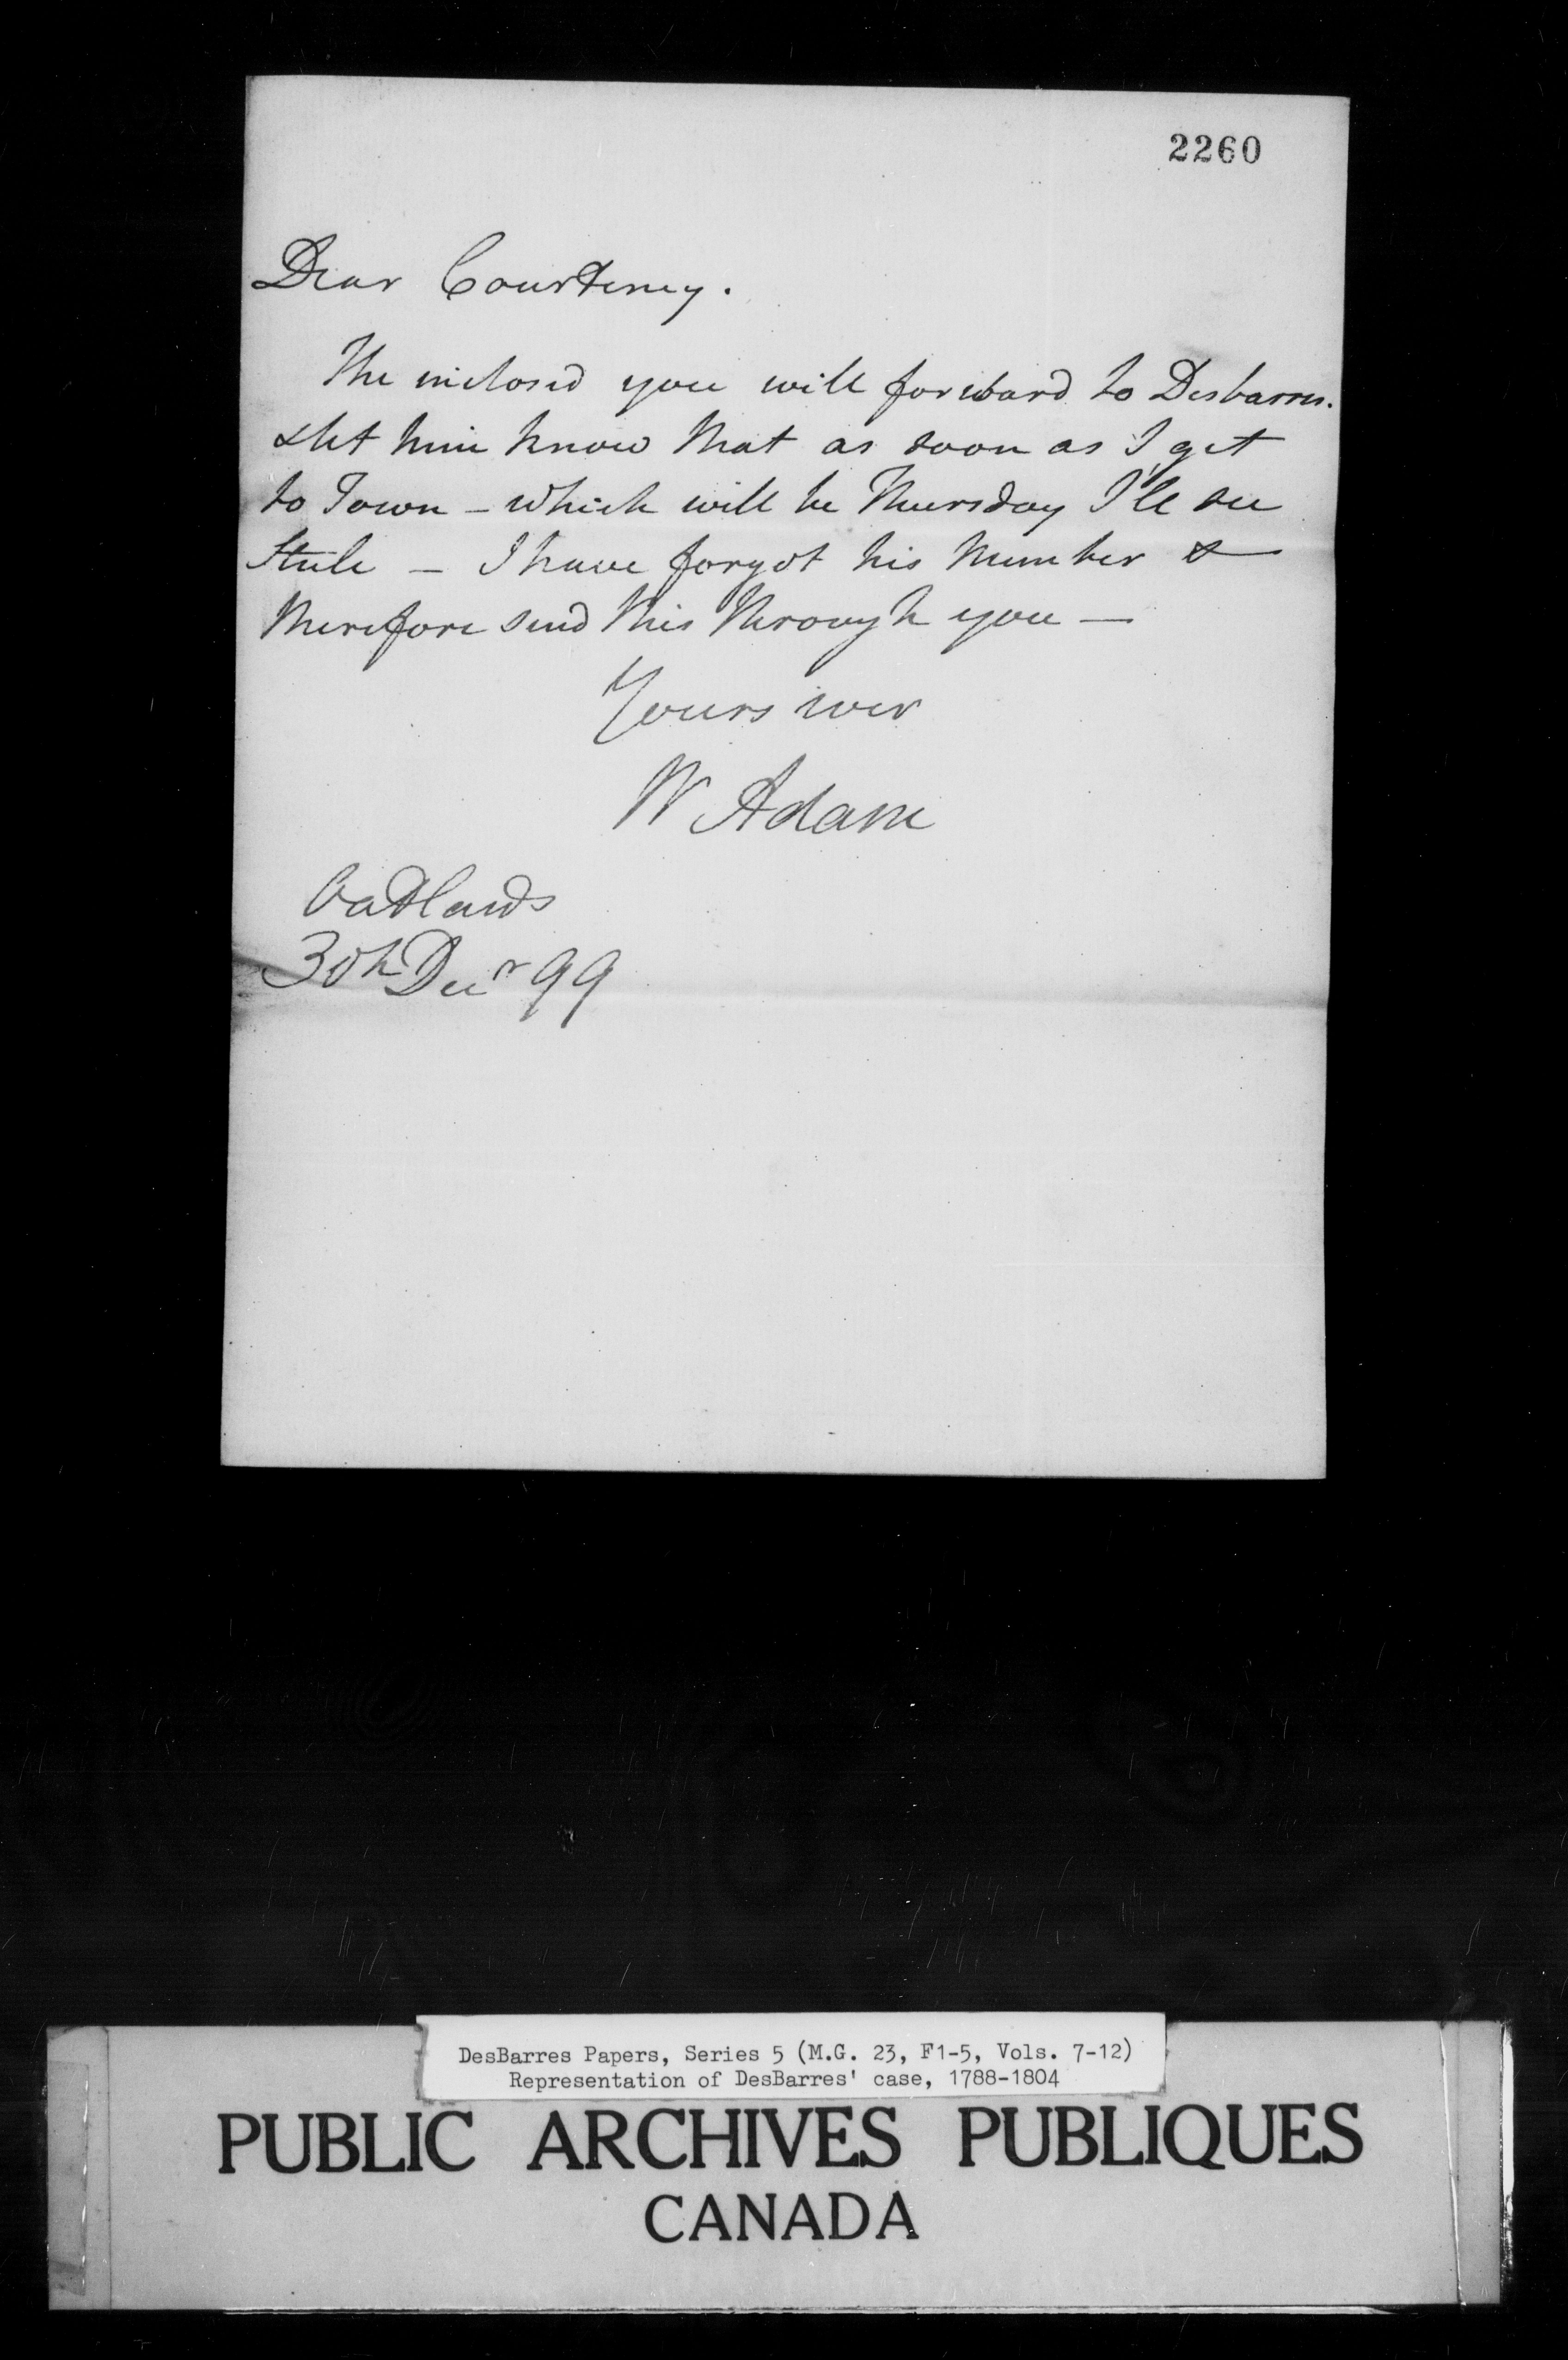 2260
Dear Courteney.
The inclosed you will forward to Desbarres.
& let him know that as soon as I get
to Town - which will be Thursday I'll see
Steele - I have forgot his Number &
therefore send this through you -
Yours ever
W Adam
Oatlands
30th Decr 99
DesBarres Papers, Series 5 (M.G. 23, F1-5, Vols. 7-12)
Representation of DesBarres' case, 1788-1804
PUBLIC ARCHIVES PUBLIQUES
CANADA